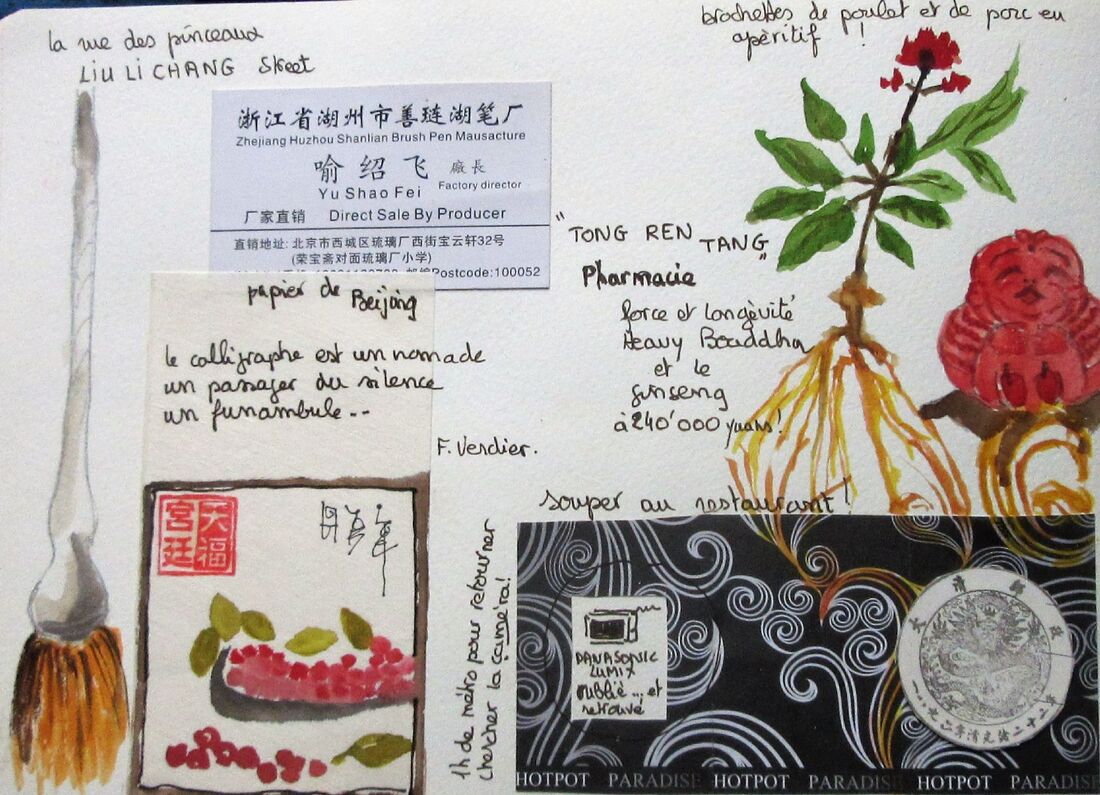 la rue des pinceaux
LIU LI CHANG Street
brochettes de poulet et de porc en
apèritif !
浙江省湖州市善琏湖笔厂
Zhejiang Huzhou Shanlian Brush Pen Mausacture
喻绍飞 廠長
Yu Shao Fei Factory director
厂家直销 Direct Sale By Producer
直销地址: 北京市西城区琉璃厂西街宝云轩32号
(荣宝斋对面琉璃厂小学)
邮编Postcode:100052
papier de Beijing
le calligraphe est un nomade
un passager du silence
un funambule..
F. Verdier.
"TONG REN TANG"
Pharmacie
force et longèvité
Heavy Bouddha
et le
ginseng
à 240'000 yuans!
souper au restaurant!
天福
宫廷
1h de métro pour retourner
chercher la caméra!
PANASONIC
LUMIX
oublié ... et
retrouvé
HOTPOT PARADISE HOTPOT PARADISE HOTPOT PARADISE